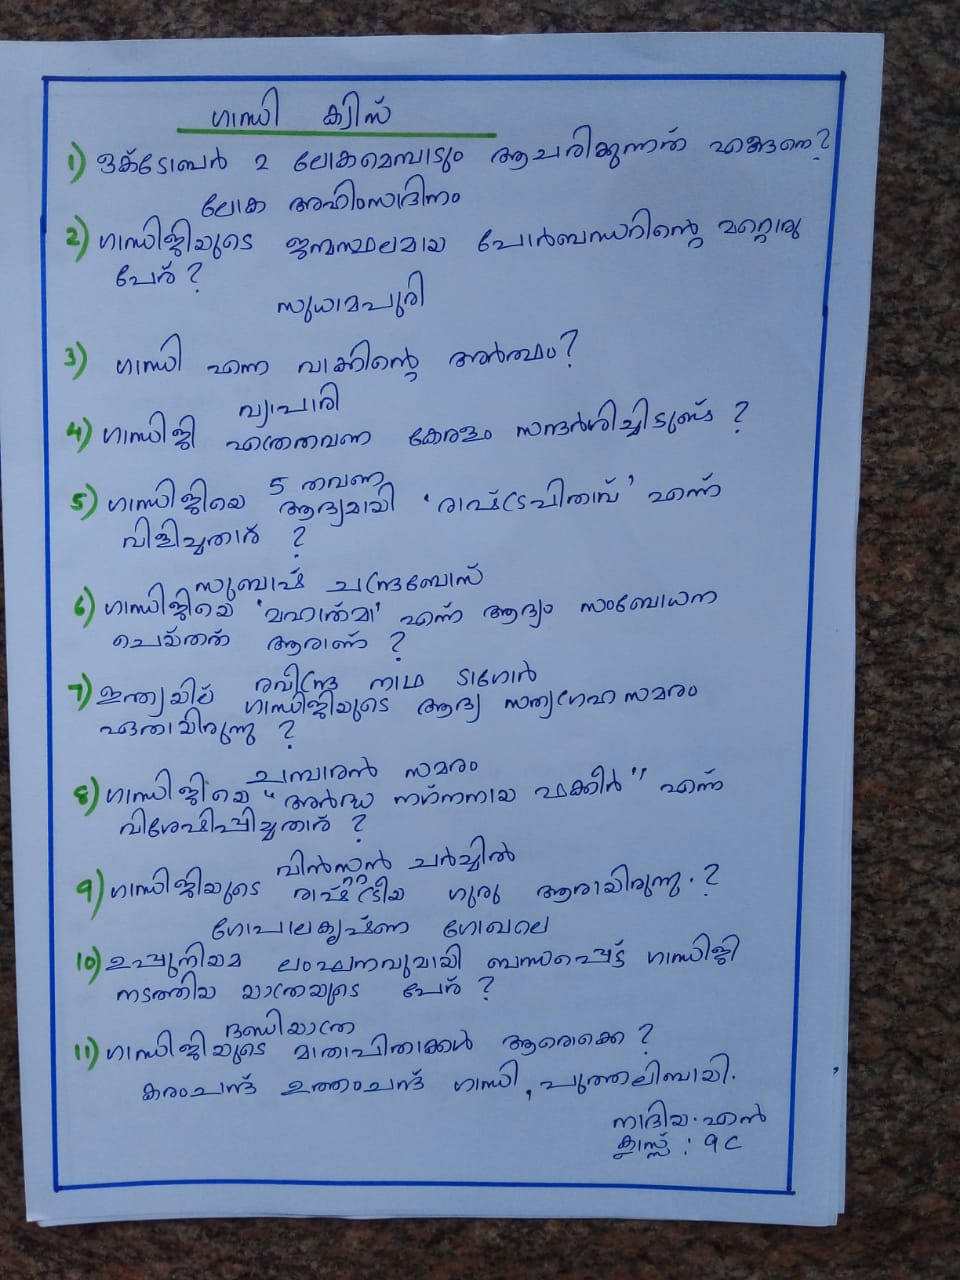 ഗാന്ധി ക്വിസ്
1) ഒക്ടോബർ 2 ലോകമെമ്പാടും ആചരിക്കുന്നത് എങ്ങനെ?
ലോക അഹിംസാദിനം
2) ഗാന്ധിജിയുടെ ജന്മസ്ഥലമായ പോർബന്ധറിന്റെ മറ്റൊരു
പേര് ?
സുധാമപുരി
3) ഗാന്ധി എന്ന വാക്കിന്റെ അർത്ഥം?
വ്യാപാരി
4) ഗാന്ധിജി എത്രതവണ കേരളം സന്ദർശിച്ചിട്ടുണ്ട് ?
5 തവണ
5) ഗാന്ധിജിയെ ആദ്യമായി 'രാഷ്ട്രപിതാവ്' എന്ന്
വിളിച്ചതാര് ?
സുബാഷ് ചന്ദ്രബോസ്
6) ഗാന്ധിജിയെ 'മഹാത്മാ' എന്ന് ആദ്യം സംബോധന
ചെയ്തത് ആരാണ് ?
രവീന്ദ്ര നാഥ ടാഗോർ
7) ഇന്ത്യയില് ഗാന്ധിജിയുടെ ആദ്യ സത്യഗ്രഹസമരം
ഏതായിരുന്നു ?
ചമ്പാരൻ സമരം
8) ഗാന്ധിജിയെ "അർദ്ധ നഗ്നനായ ഫക്കീർ" എന്ന്
വിശേഷിപ്പിച്ചതാര് ?
വിൻസ്റ്റൻ ചർച്ചിൽ
9) ഗാന്ധിജിയുടെ രാഷ്ട്രീയ ഗുരു ആരായിരുന്നു.?
ഗോപാലകൃഷ്ണ ഗോഖലെ
10) ഉപ്പുനിയമ ലംഘനവുമായി ബന്ധപ്പെട്ട് ഗാന്ധിജി
നടത്തിയ യാത്രയുടെ പേര് ?
ദണ്ഡിയാത്ര
11) ഗാന്ധിജിയുടെ മാതാപിതാക്കൾ ആരൊക്കെ ?
കരംചന്ദ് ഉത്തംചന്ദ് ഗാന്ധി, പുത്തലിബായി.
നാദിയ.എൻ
ക്ലാസ്സ് : 9 C